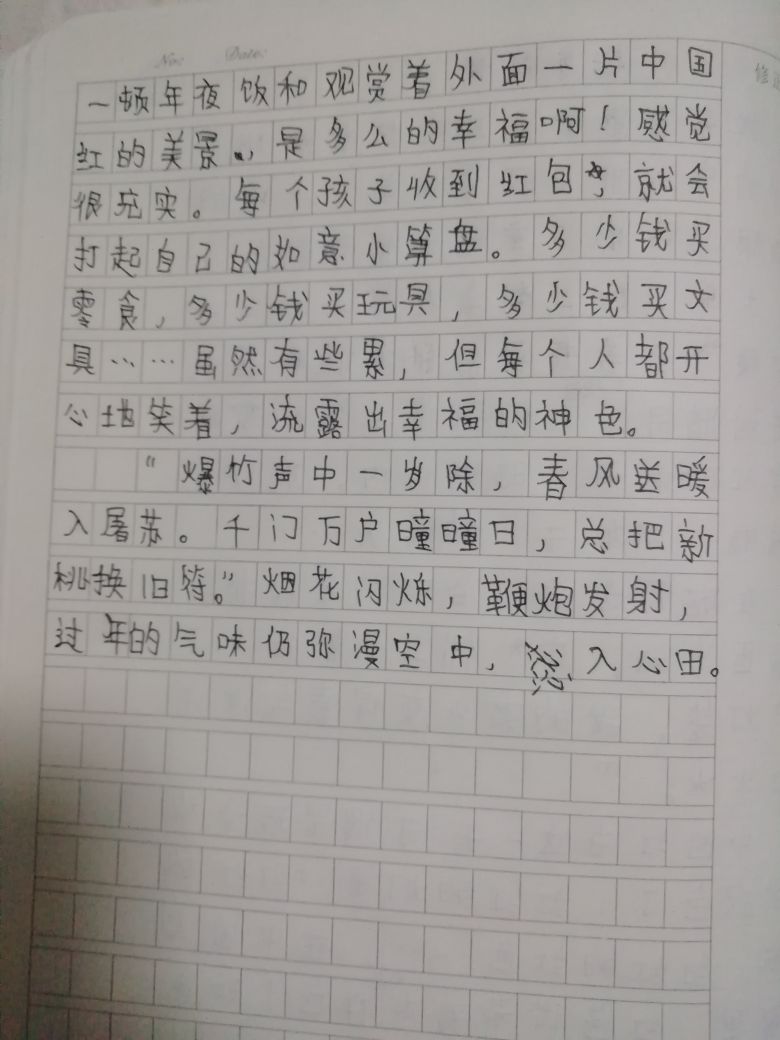 No: Date:
一顿年夜饭和观赏着外面一片中国
红的美景，是多么的幸福啊！感觉
很充实。每个孩子收到红包，就会
打起自己的如意小算盘。多少钱买
零食，多少钱买玩具，多少钱买文
具……虽然有些累，但每个人都开
心地笑着，流露出幸福的神色。
“爆竹声中一岁除，春风送暖
入屠苏。千门万户曈曈日，总把新
桃换旧符。”烟花闪烁，鞭炮发射，
过年的气味仍弥漫空中，入心田。